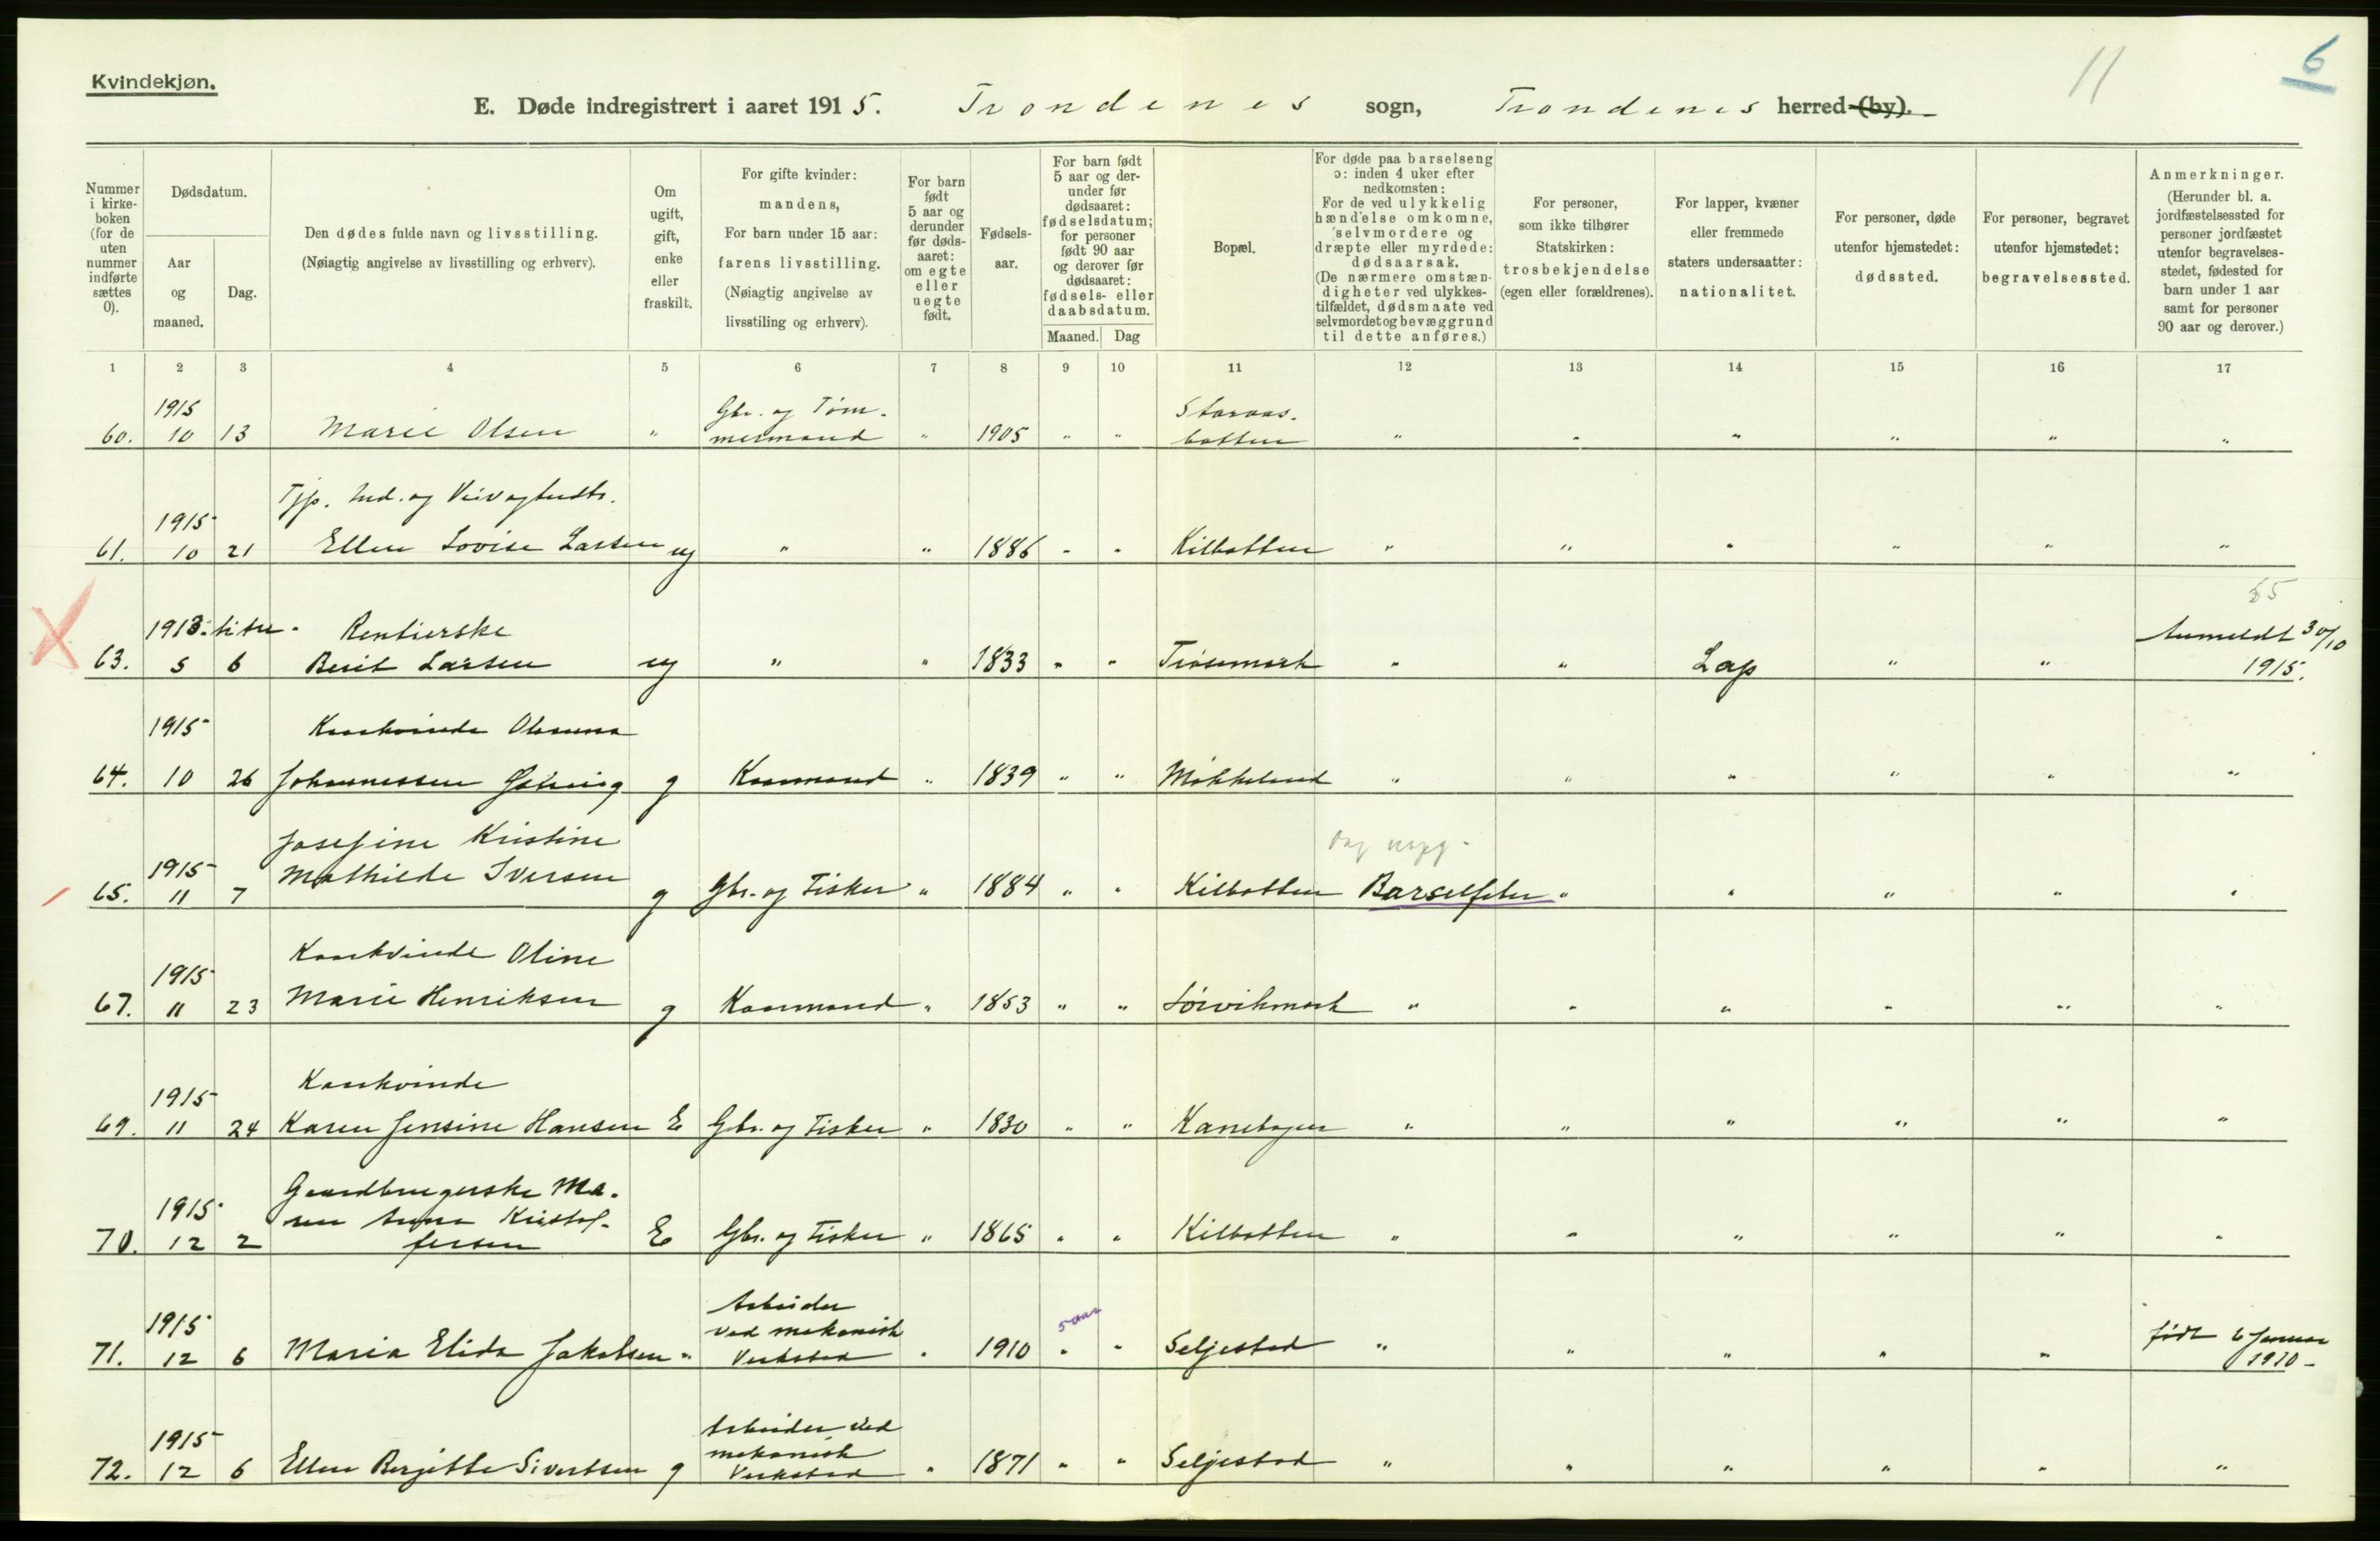 Kvindekjøn.
11
6
E. Døde indregistrert i aaret 1915. Trondenes sogn, Trondenes herred (by).
Nummer i kirkeboken (for de uten nummer indførte sættes 0).
Dødsdatum.
Aar og maaned.
Dag.
Den dødes fulde navn og livsstilling.
(Nøiagtig angivelse av livsstilling og erhverv).
Om ugift, gift, enke eller fraskilt.
For gifte kvinder: mandens, For barn under 15 aar: farens livsstilling. (Nøiagtig angivelse av livsstiling og erhverv).
For barn født 5 aar og derunder før dødsaaret: om egte eller uegte født.
Fødselsaar.
For barn født 5 aar og derunder før dødsaaret: fødselsdatum; for personer født 90 aar og derover før dødsaaret: fødsels- eller daabsdatum.
Maaned. Dag
Bopæl.
For døde paa barselseng ɔ: inden 4 uker efter nedkomsten: For de ved ulykkelig hændelse omkomne, selvmordere og dræpte eller myrdede: dødsaarsak. (De nærmere omstændigheter ved ulykkestilfældet, dødsmaate ved selvmordet og bevæggrund til dette anføres.)
For personer, som ikke tilhører Statskirken: trosbekjendelse (egen eller forældrenes).
For lapper, kvæner eller fremmede staters undersaatter: nationalitet.
For personer, døde utenfor hjemstedet: dødssted.
For personer, begravet utenfor hjemstedet: begravelsessted.
Anmerkninger. (Herunder bl. a. jordfæstelsessted for personer jordfæstet utenfor begravelsesstedet, fødested for barn under 1 aar samt for personer 90 aar og derover.)
1 2 3 4 5 6 7 8 9 10 11 12 13 14 15 16 17
1915 Gbr. og Tøm-
60. 10 13 Marie Olsen " mermand " 1905 " " botten " " " " " "
1915
61. 10 21 Ellen Lovise Larsen ug " " 1886 " " Kilbotten " " " " " "
65
1913. Rentierske Anmeldt 30/10
63. 5 6 Berit Larsen ug " " 1833 " " Trøsemark " " Lap " " 1915.
1915 Kaarkvinde
64. 10 26 Johannessen g Kaarmand " 1839 " " Møkkeland " " " " " "
Josefine Kristine
1915 Mathilde Iversen
65. 11 7 g Gbr. og Fisker " 1884 " " Kilbotten Barselfeber " " " " "
Kaarkvinde Oline
1915
67. 11 23 Marie Henriksen g Kaarmand " 1853 " " Sørvikmark " " " " " "
1915 Kaarkvinde
69. 11 24 Karen Jensine Hansen E Gbr. og Fisker " 1830 " " Kanebogen " " " " " "
Gaardbrugerske Ma-
1915 ren Anna Kristof-
70. 12 2 fersen E Gbr. og Fisker " 1865 " " Kilbotten " " " " " "
1915 Arbeider ved mekanisk 5 aar født 6 Januar
71. 12 6 Maria Elida Jakobsen " Verksted " 1910 " " Seljestad " " " " " 1910 -
1915 Arbeider ved mekanisk
72. 12 6 Ellen Bergitte Sivertsen g Verksted " 1871 " " Seljestad " " " " " "